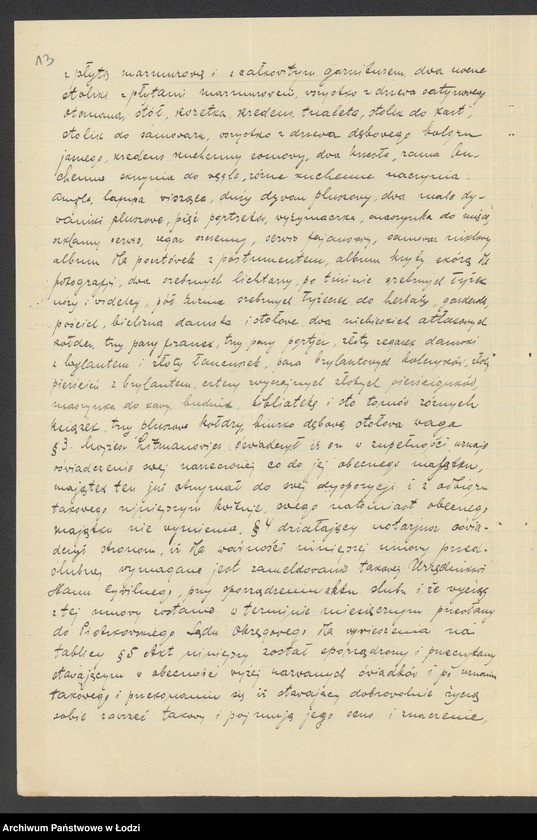 13
z płytą marmurową i z całkowitym garniturem, dwa nocne
stoliki z płytami marmurowemi, wszystko z drzewa satynowego
otomana, stół, kozetka, kredens, tualeta, stolik do kart,
stolik do samowara, wszystko z drzewa dębowego koloru
jasnego, kredens kuchenny sosnowy, dwa krzesła, rama ku-
chenna skrzynia do węgla, różne kuchenne naczynia,
lampa wisząca, duży dywan pluszowy, dwa małe dy-
waniki pluszowe, pięć portretów, wyżymaczka, maszynka do mięsa,
szklanny serwis, zegar ścienny, serwis fajansowy, samowar niklowy
album dla pocztówek z postumentem, album kryty skórą dla
fotografji, dwa srebrnych lichtarzy, po tuzinie srebrnych łyżek
noży i widelcy, pół tuzina srebrnych łyżeczek do herbaty, garderoba
pościel, bielizna damska i stołowa, dwa niebieskich atłasowych
kołder, trzy pary firanek, trzy pary portjer, złoty zegarek damski
z brylantem i złoty łańcuszek, para brylantowych kolczyków, złoty
pierścień z brylantem, cztery zwyczajnych złotych pierścionków,
maszynka do kawy, budzik, biblioteka i sto tomów różnych
książek, trzy pluszowe kołdry, biurko dębowe, stołowa waga
§ 3. Mojżesz Litmanowicz oświadczył iż on w zupełności uznaje
oświadczenie swej narzeczonej co do jej obecnego majątku,
majątek ten już otrzymał do swej dyspozycji i z odbioru
takowego niniejszym kwituje, swego natomiast obecnego
majątku nie wymienia. § 4 działający notarjusz oświa-
dczył stronom, iż dla ważności niniejszej umowy przed-
ślubnej wymagane jest zameldowanie takowej Urzędnikowi
Stanu Cywilnego, przy sporządzeniu aktu ślubu i że wyciąg
z tej umowy zostanie w terminie miesięcznym przesłany
do Piotrkowskiego Sądu Okręgowego dla wywieszenia na
tablicy § 5 Akt niniejszy został sporządzony i przeczytany
stawającym w obecności wyżej nazwanych świadków i po
takowego i przekonaniu się iż stawający dobrowolnie życzą
sobie zawrzeć takowy i pojmują jego sens i znaczenie,
Archiwum Państwowe w Łodzi